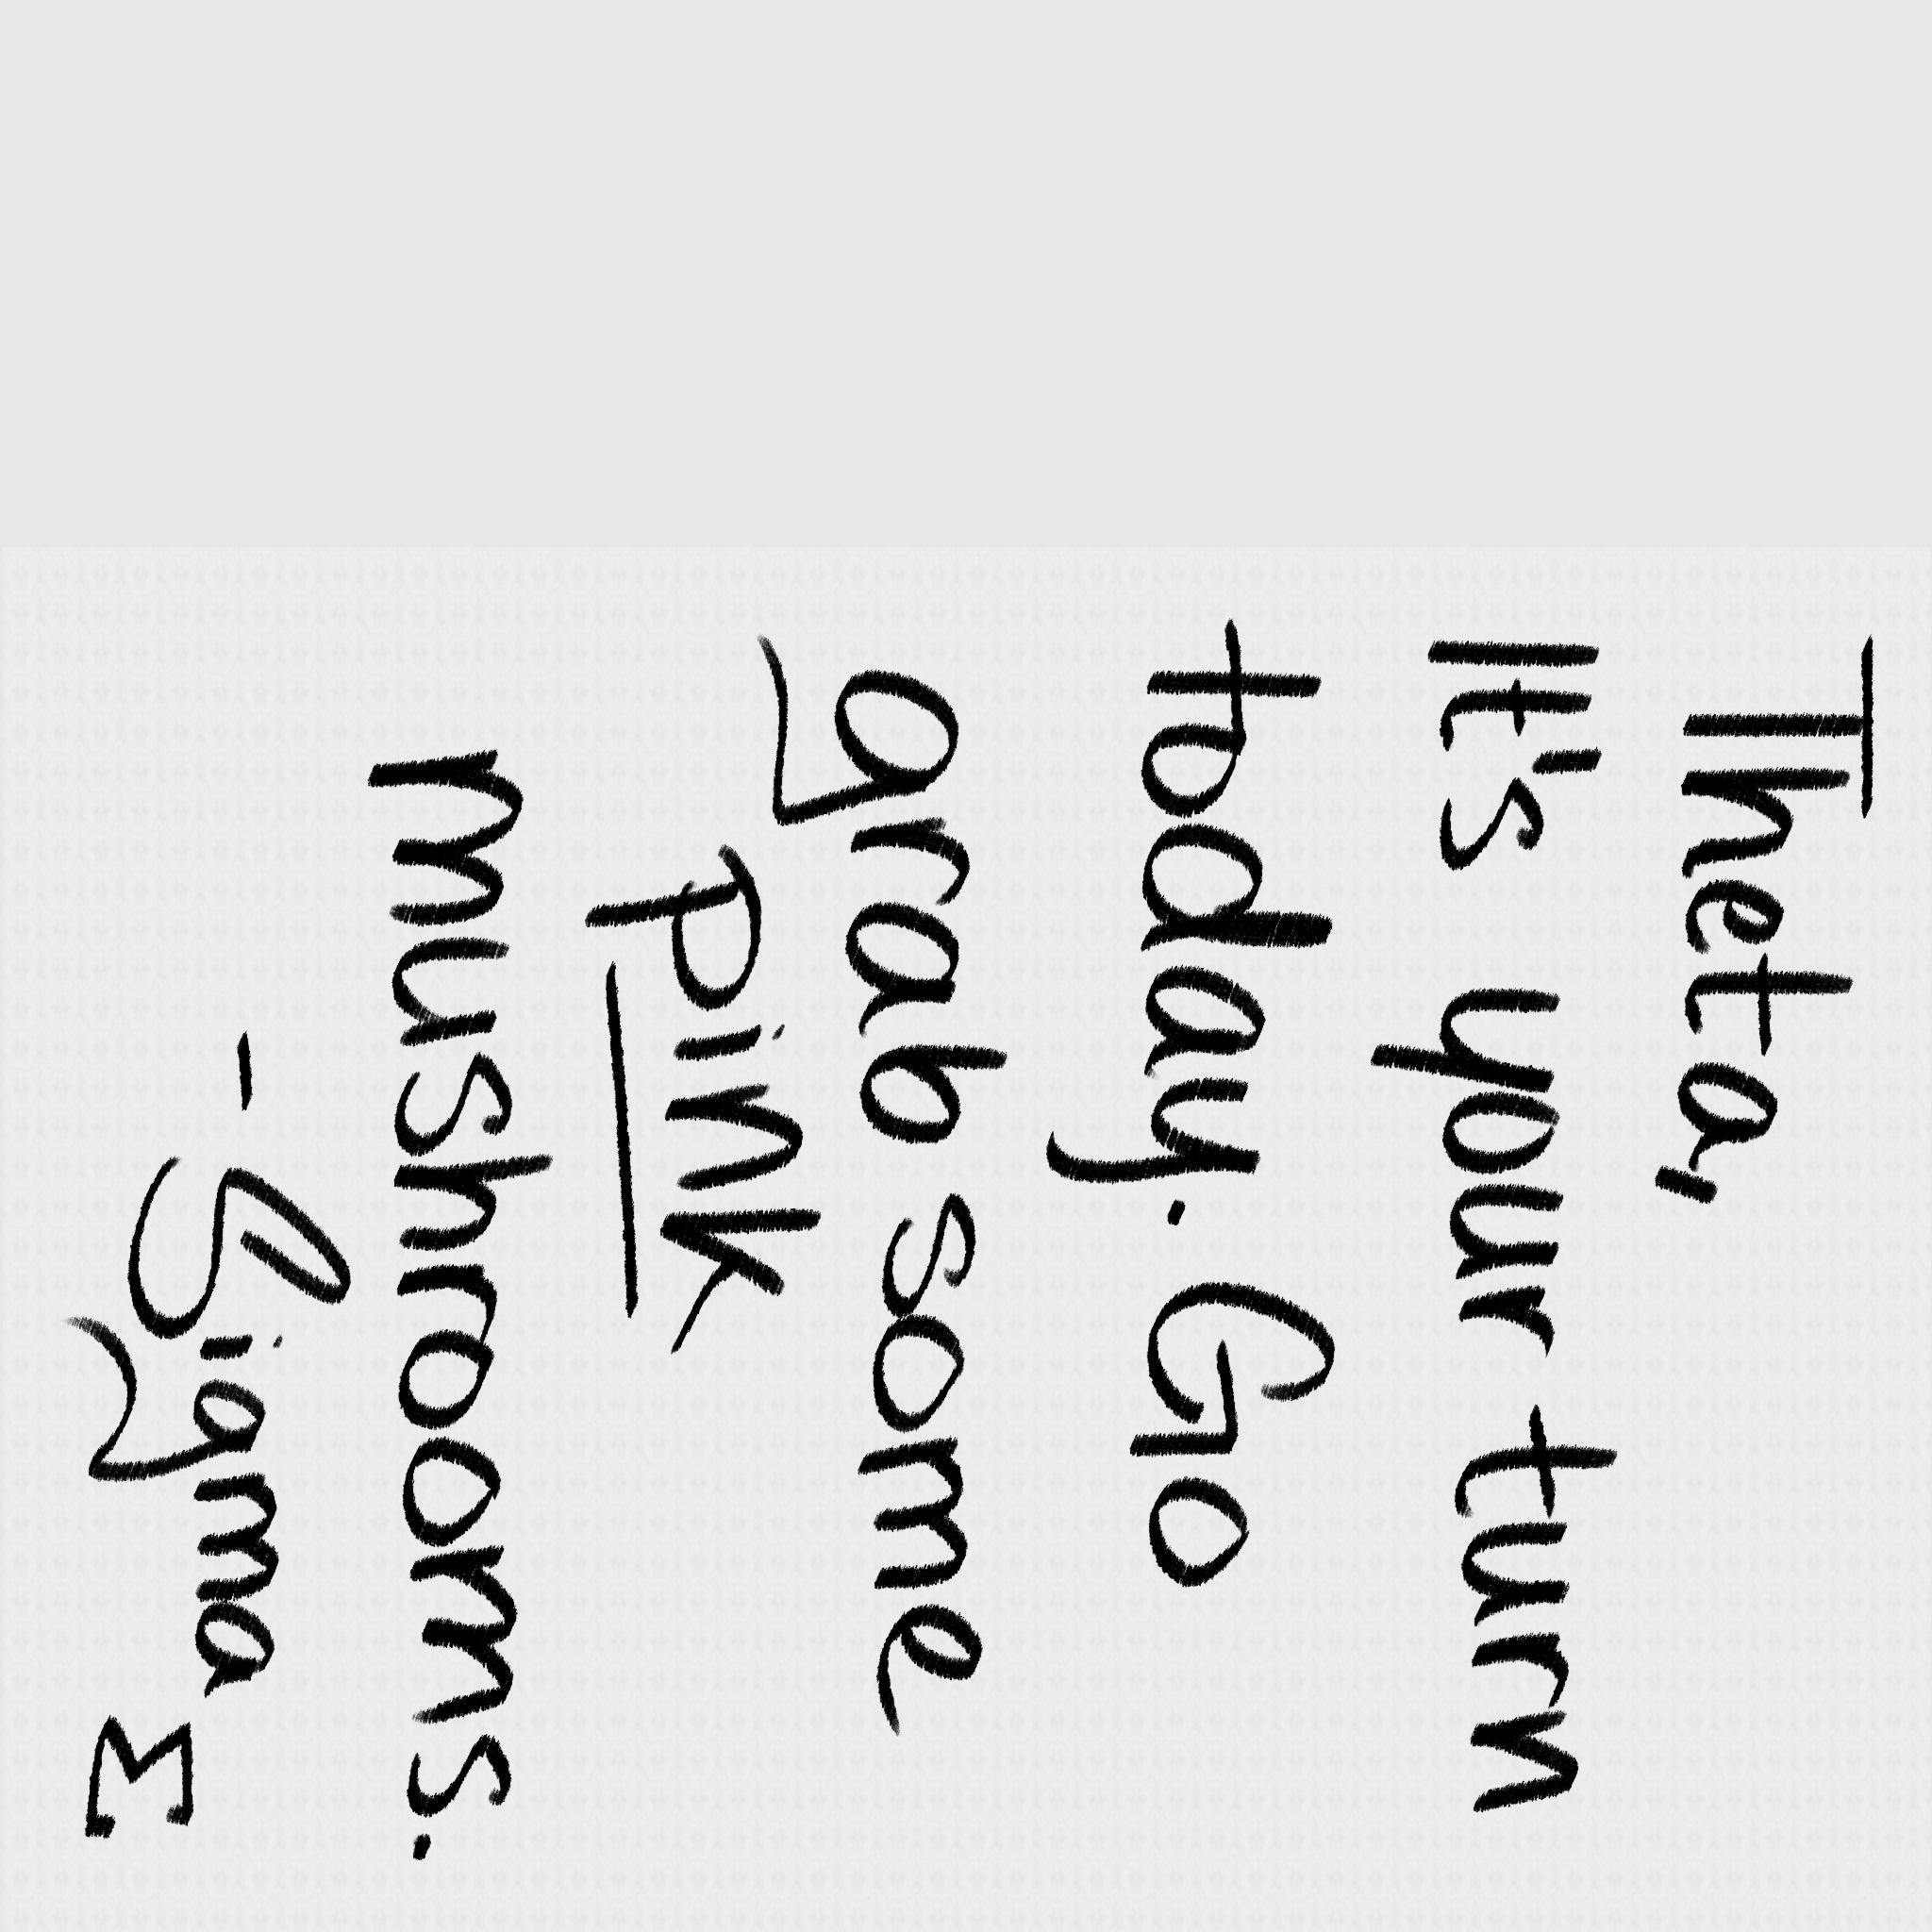 Theta,
It's your turn
today. Go
grab some
Pink
mushrooms.
- Sigma
Σ